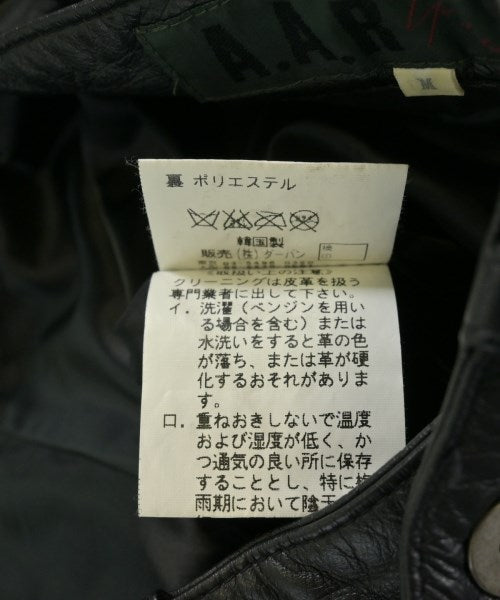 A.A.R
M
裏 ポリエステル
韓国製
販売(株)ターバン
検
印
《取扱い上の注意》
クリーニングは皮革を扱う
専門業者に出して下さい。
イ. 洗濯(ベンジンを用い
る場合を含む)または
水洗いをすると革の色
が落ち、または革が硬
化するおそれがありま
す。
ロ. 重ねおきしないで温度
および湿度が低く、か
つ通気の良い所に保存
することとし、特に梅
雨期において陰干